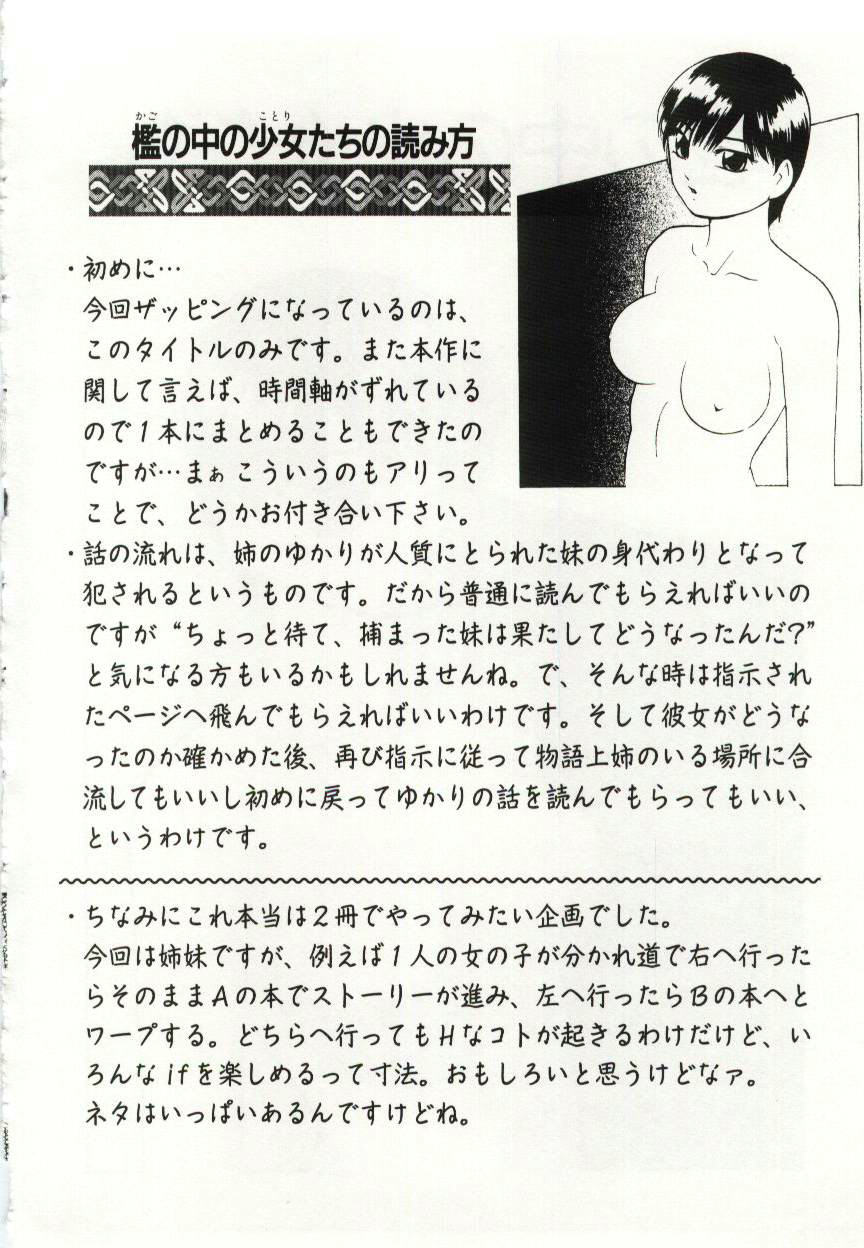 かご ことり
檻の中の少女たちの読み方
・初めに…
今回ザッピングになっているのは、
このタイトルのみです。また本作に
関して言えば、時間軸がずれている
ので1本にまとめることもできたの
ですが…まぁこういうのもアリって
ことで、どうかお付き合い下さい。
・話の流れは、姉のゆかりが人質にとられた妹の身代わりとなって
犯されるというものです。だから普通に読んでもらえればいいの
ですが“ちょっと待て、捕まった妹は果たしてどうなったんだ?”
と気になる方もいるかもしれませんね。で、そんな時は指示され
たページへ飛んでもらえればいいわけです。そして彼女がどうな
ったのか確かめた後、再び指示に従って物語上姉のいる場所に合
流してもいいし初めに戻ってゆかりの話を読んでもらってもいい、
というわけです。
・ちなみにこれ本当は2冊でやってみたい企画でした。
今回は姉妹ですが、例えば1人の女の子が分かれ道で右へ行った
らそのままAの本でストーリーが進み、左へ行ったらBの本へと
ワープする。どちらへ行ってもHなコトが起きるわけだけど、い
ろんなifを楽しめるって寸法。おもしろいと思うけどなァ。
ネタはいっぱいあるんですけどね。